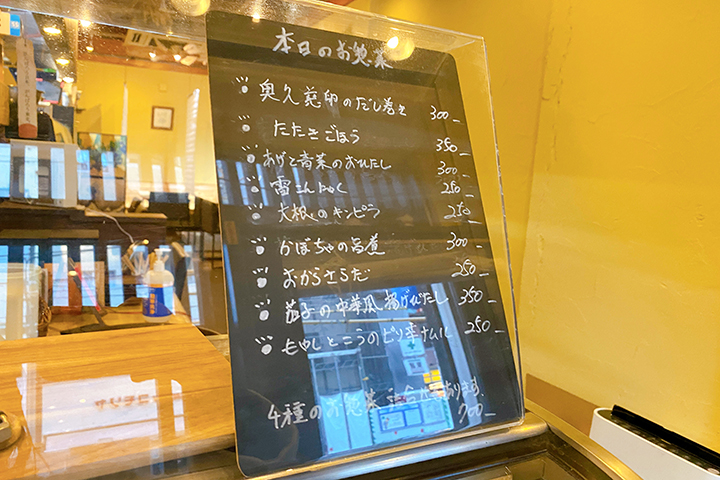 本日のお惣菜
奥久慈卵のだし巻き 300-
たたきごぼう 350-
あげと青菜のおひたし 300-
雷こんにゃく 250-
大根のキンピラ 250-
かぼちゃの旨煮 300-
おからさらだ 250-
茄子の中華風揚げびたし 350-
もやしときゅうりのピリ辛ナムル 250-
4種のお惣菜 あります。
700-